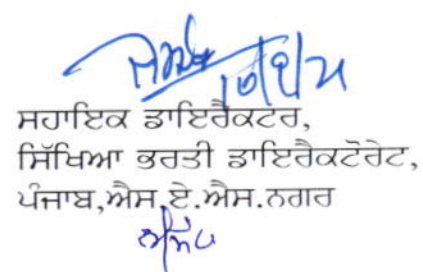 ਸਹਾਇਕ ਡਾਇਰੈਕਟਰ,
ਸਿੱਖਿਆ ਭਰਤੀ ਡਾਇਰੈਕਟੋਰੇਟ,
ਪੰਜਾਬ,ਐਸ.ਏ.ਐਸ.ਨਗਰ